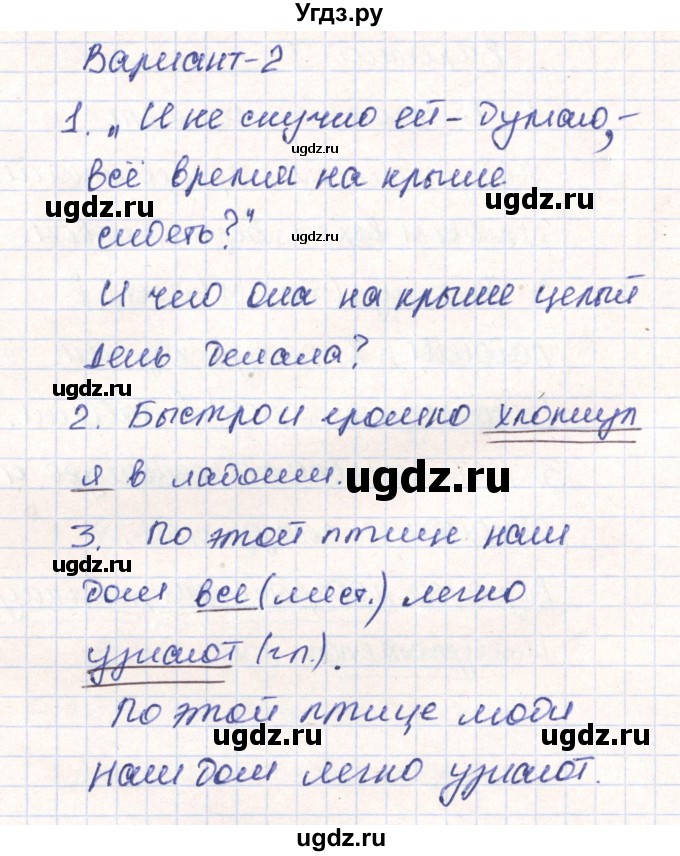 Угдз.ру
Вариант-2
1. „И не скучно ей - думаю, -
ugdz.ru
всё время на крыше
ugdz.ru ugdz.ru
сидеть?"
ugdz.ru
И чего она на крыше целый
день делала?
ugdz.ru
2. Быстро и громко хлопнул
я в ладоши.
ugdz.ru
3. По этой птице наш
ugdz.ru
дом все (мест.) легко
ugdz.ru
узнают (гл.).
По этой птице люди
ugdz.ru ugdz.ru
наш дом легко узнают.
ugdz.ru